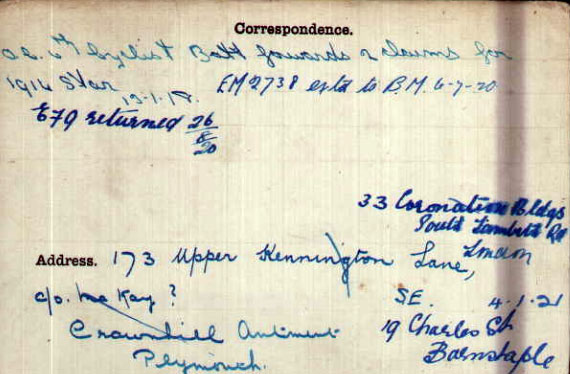 Correspondence.
Cyclist Batt forwards 2 claims for
1914 Star 12-1-18. EM 2738 estd to B.M. 6-7-20
E79 returned 26/8/20
33 Coronation Bldgs
South Lambeth Rd
London
Address. 173 Upper Kennington Lane,
c/o. McKay ? S.E. 4.1.21
Crownhill 19 Charles St
Plymouth. Barnstaple